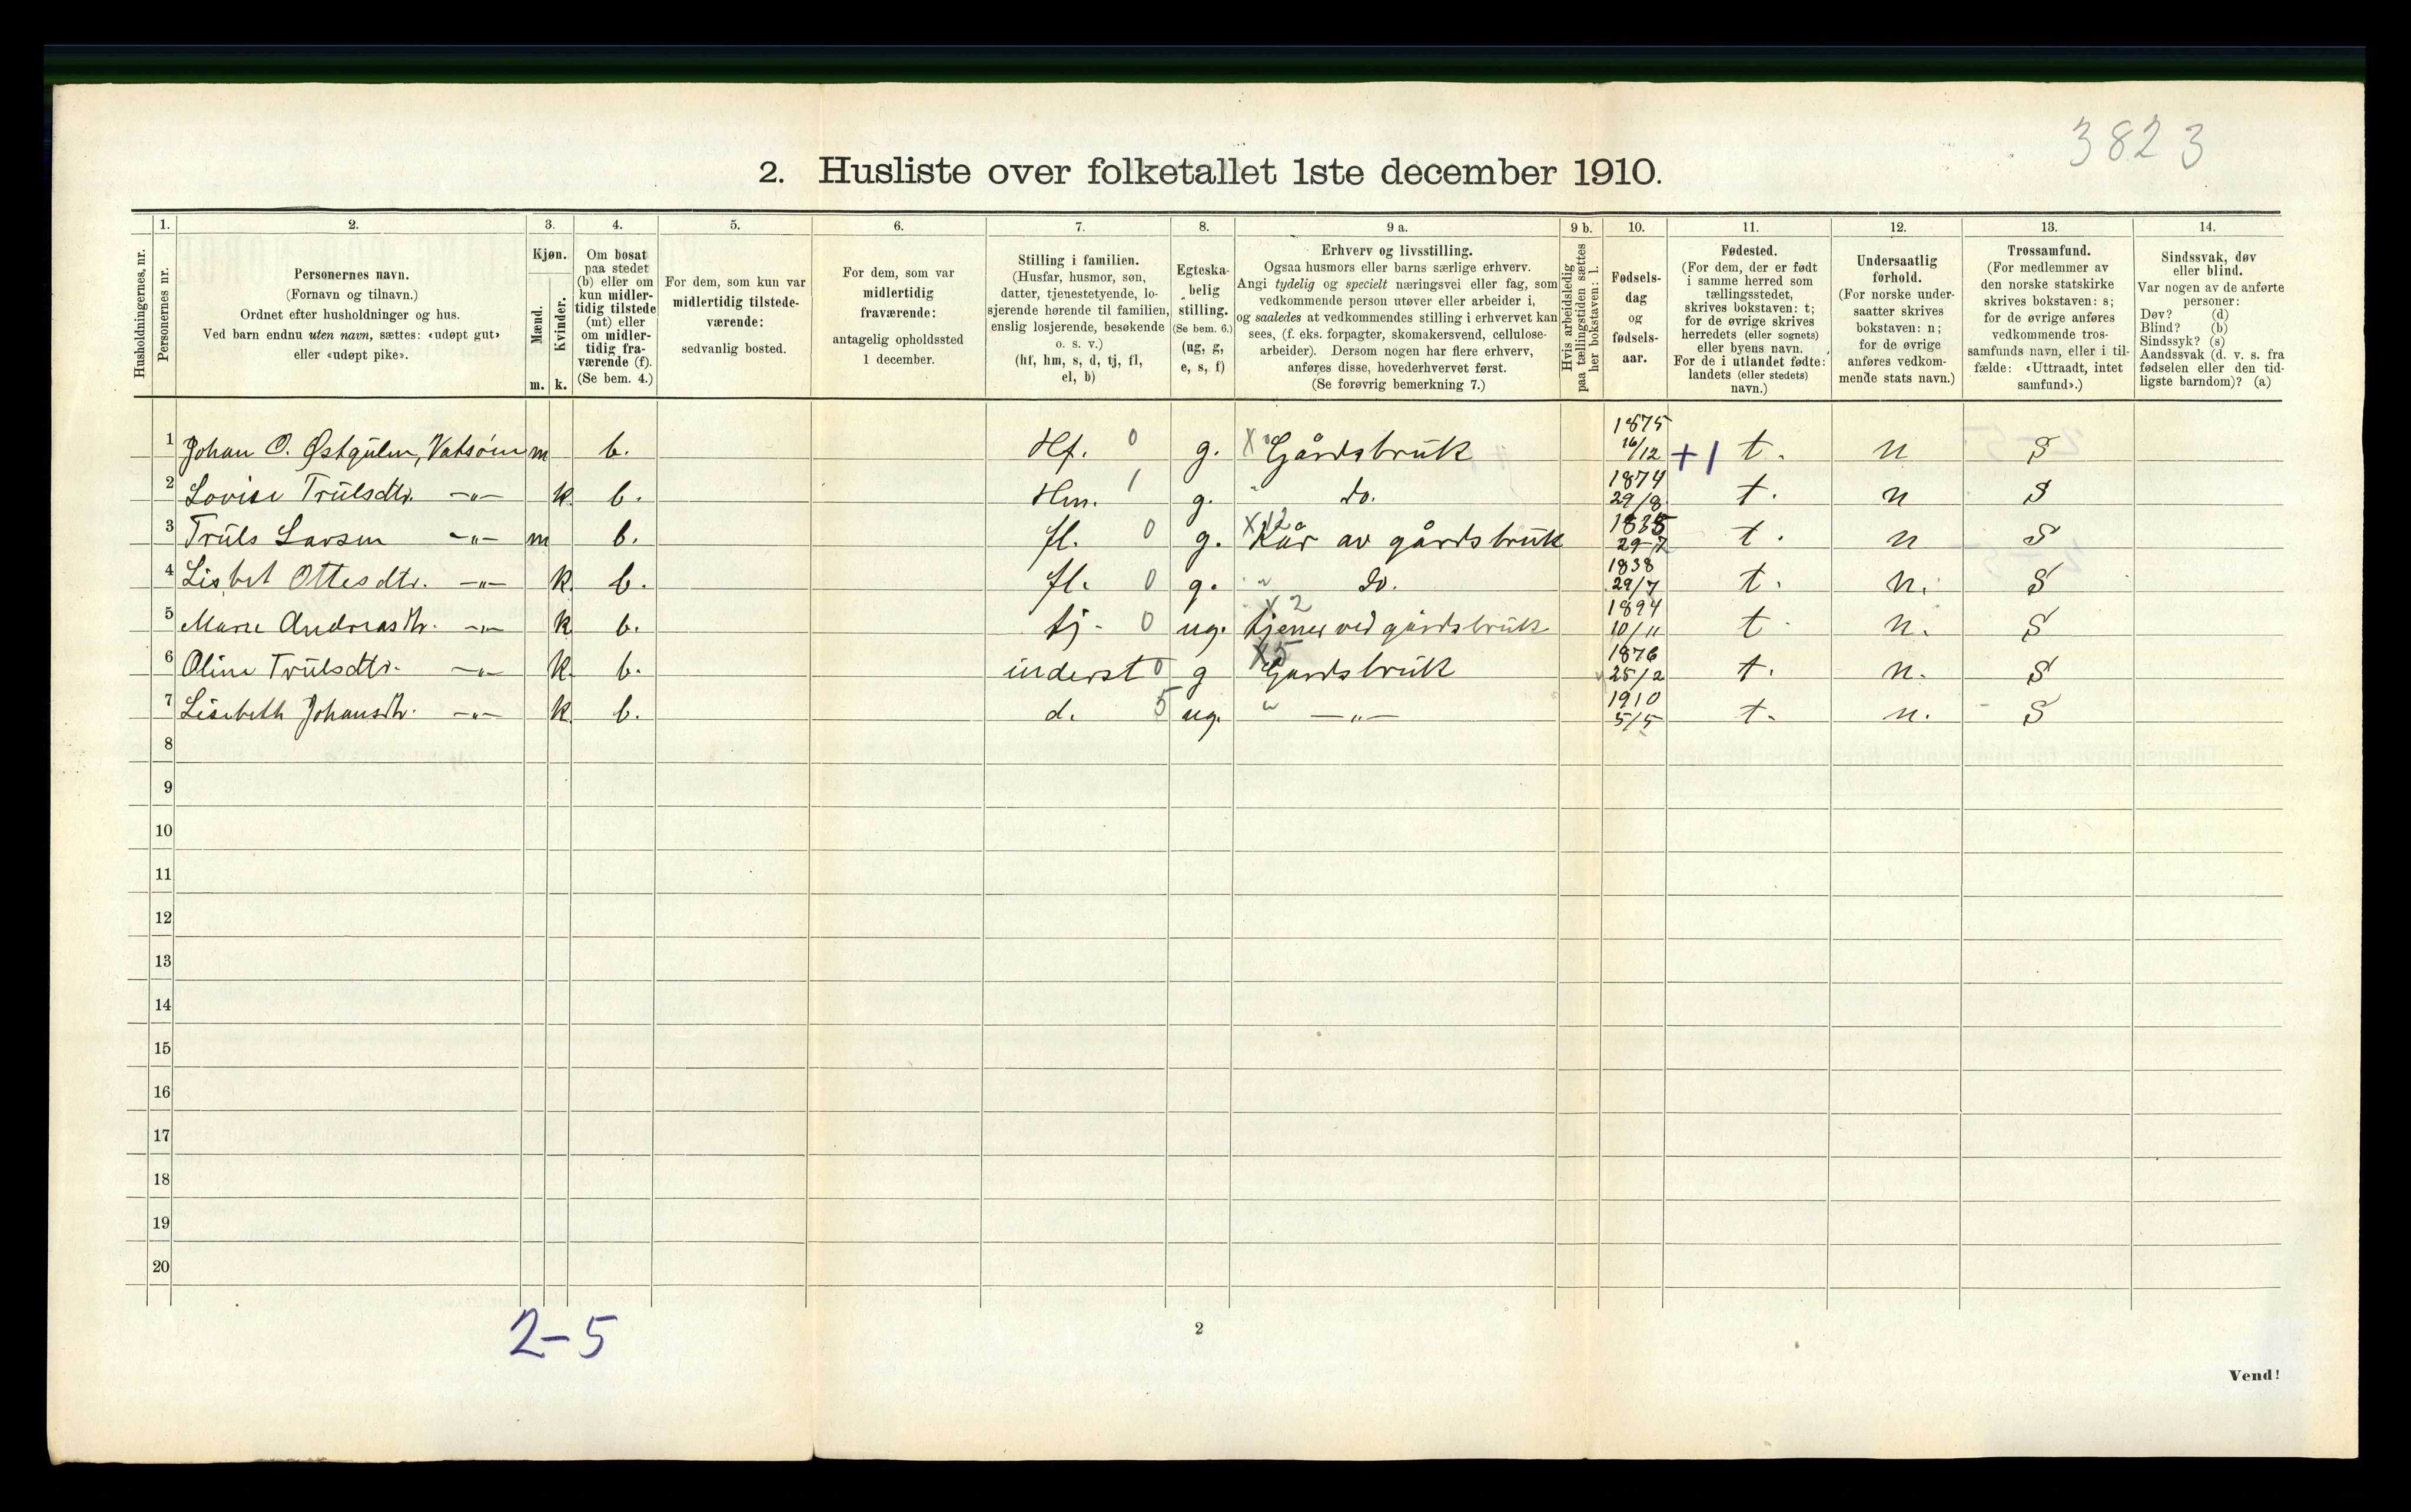 3823
2. Husliste over folketallet 1ste december 1910.
Husholdningernes, nr.
1.
Personernes nr.
2.
Personernes navn.
(Fornavn og tilnavn.)
Ordnet efter husholdninger og hus.
Ved barn endnu uten navn, sættes: «udøpt gut»
eller «udøpt pike».
3.
Kjøn.
Mænd.
Kvinder.
m. k.
4.
Om bosat
paa stedet
(b) eller om
kun midler-
tidig tilstede
(mt) eller
om midler-
tidig fra-
værende (f).
(Se bem. 4.)
5.
For dem, som kun var
midlertidig tilstede-
værende:
sedvanlig bosted.
6.
For dem, som var
midlertidig
fraværende:
antagelig opholdssted
1 december.
7.
Stilling i familien.
(Husfar, husmor, søn,
datter, tjenestetyende, lo-
sjerende hørende til familien,
enslig losjerende, besøkende
o. s. v.)
(hf, hm, s, d, tj, fl,
el, b)
8.
Egteska-
belig
stilling.
(Se bem. 6.)
(ug, g,
e, s, f)
9 a.
Erhverv og livsstilling.
Ogsaa husmors eller barns særlige erhverv.
Angi tydelig og specielt næringsvei eller fag, som
vedkommende person utøver eller arbeider i,
og saaledes at vedkommendes stilling i erhvervet kan
sees, (f. eks. forpagter, skomakersvend, cellulose-
arbeider). Dersom nogen har flere erhverv,
anføres disse, hovederhvervet først.
(Se forøvrig bemerkning 7.)
9 b.
Hvis arbeidsledig
paa tællingstiden sættes
her bokstaven: l.
10.
Fødsels-
dag
og
fødsels-
aar.
11.
Fødested.
(For dem, der er født
i samme herred som
tællingsstedet,
skrives bokstaven: t;
for de øvrige skrives
herredets (eller sognets)
eller byens navn.
For de i utlandet fødte:
landets (eller stedets)
navn.)
12.
Undersaatlig
forhold.
(For norske under-
saatter skrives
bokstaven: n;
for de øvrige
anføres vedkom-
mende stats navn.)
13.
Trossamfund.
(For medlemmer av
den norske statskirke
skrives bokstaven: s;
for de øvrige anføres
vedkommende tros-
samfunds navn, eller i til-
fælde: «Uttraadt, intet
samfund».)
14.
Sindssvak, døv
eller blind.
Var nogen av de anførte
personer:
Døv? (d)
Blind? (b)
Sindssyk? (s)
Aandssvak (d. v. s. fra
fødselen eller den tid-
ligste barndom)? (a)
1 Johan O. Østgulen, m b. Hf. 0 g. X Gårdsbruk 1875 16/12 +1 t. n S
2 Lovise Trülsdtr. —„— k b. Hm. 1 g. „ do. 1874 29/8 t. n S
3 Trüls Larsen —„— m b. fl. 0 g. X12 Kår av gårdsbrük 1835 29-7 t. n S
4 Lisbet Ottesdtr. —„— k. b. fl. 0 g. „ do. 1838 29/7 t. n. S
5 Marie Andreasdtr. —„— k b. tj. 0 ug. X2 tjener ved gårdsbrük 1894 10/11 t n. S
6 Oline Trülsdtr. —„— k. b. inderst 0 g X5 Gardsbrük 1876 25/2 t. n. S
7 Lisebeth Johansdtr. —„— k. b. d. 5 ug. „ —„— 1910 5/5 t. n. S
8
9
10
11
12
13
14
15
16
17
18
19
20
2-5
2
Vend!